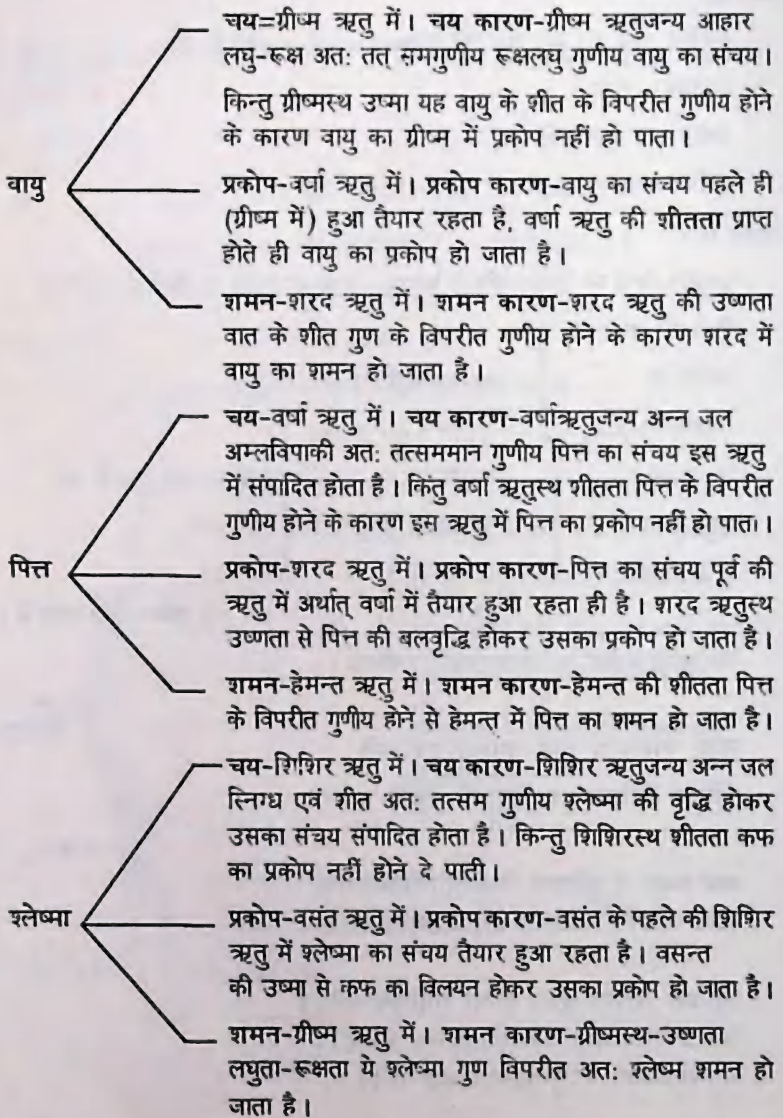 चय=ग्रीष्म ऋतु में। चय कारण-ग्रीष्म ऋतुजन्य आहार
लघु-रूक्ष अतः तत् समगुणीय रूक्षलघु गुणीय वायु का संचय।
किन्तु ग्रीष्मस्थ उष्मा यह वायु के शीत के विपरीत गुणीय होने
के कारण वायु का ग्रीष्म में प्रकोप नहीं हो पाता।
वायु
प्रकोप-वर्षा ऋतु में। प्रकोप कारण-वायु का संचय पहले ही
(ग्रीष्म में) हुआ तैयार रहता है, वर्षा ऋतु की शीतता प्राप्त
होते ही वायु का प्रकोप हो जाता है।
शमन-शरद ऋतु में। शमन कारण-शरद ऋतु की उष्णता
वात के शीत गुण के विपरीत गुणीय होने के कारण शरद में
वायु का शमन हो जाता है।
चय-वर्षा ऋतु में। चय कारण-वर्षाऋतुजन्य अन्न जल
अम्लविपाकी अतः तत्सममान गुणीय पित्त का संचय इस ऋतु
में संपादित होता है। किंतु वर्षा ऋतुस्थ शीतता पित्त के विपरीत
गुणीय होने के कारण इस ऋतु में पित्त का प्रकोप नहीं हो पाता।
पित्त
प्रकोप-शरद ऋतु में। प्रकोप कारण-पित्त का संचय पूर्व की
ऋतु में अर्थात् वर्षा में तैयार हुआ रहता ही है। शरद ऋतुस्थ
उष्णता से पित्त की बलवृद्धि होकर उसका प्रकोप हो जाता है।
शमन-हेमन्त ऋतु में। शमन कारण-हेमन्त की शीतता पित्त
के विपरीत गुणीय होने से हेमन्त में पित्त का शमन हो जाता है।
चय-शिशिर ऋतु में। चय कारण-शिशिर ऋतुजन्य अन्न जल
स्निग्ध एवं शीत अतः तत्सम गुणीय श्लेष्मा की वृद्धि होकर
उसका संचय संपादित होता है। किन्तु शिशिरस्थ शीतता कफ
का प्रकोप नहीं होने दे पाती।
श्लेष्मा
प्रकोप-वसंत ऋतु में। प्रकोप कारण-वसंत के पहले की शिशिर
ऋतु में श्लेष्मा का संचय तैयार हुआ रहता है। वसन्त
की उष्मा से कफ का विलयन होकर उसका प्रकोप हो जाता है।
शमन-ग्रीष्म ऋतु में। शमन कारण-ग्रीष्मस्थ-उष्णता
लघुता-रूक्षता ये श्लेष्मा गुण विपरीत अतः श्लेष्म शमन हो
जाता है।